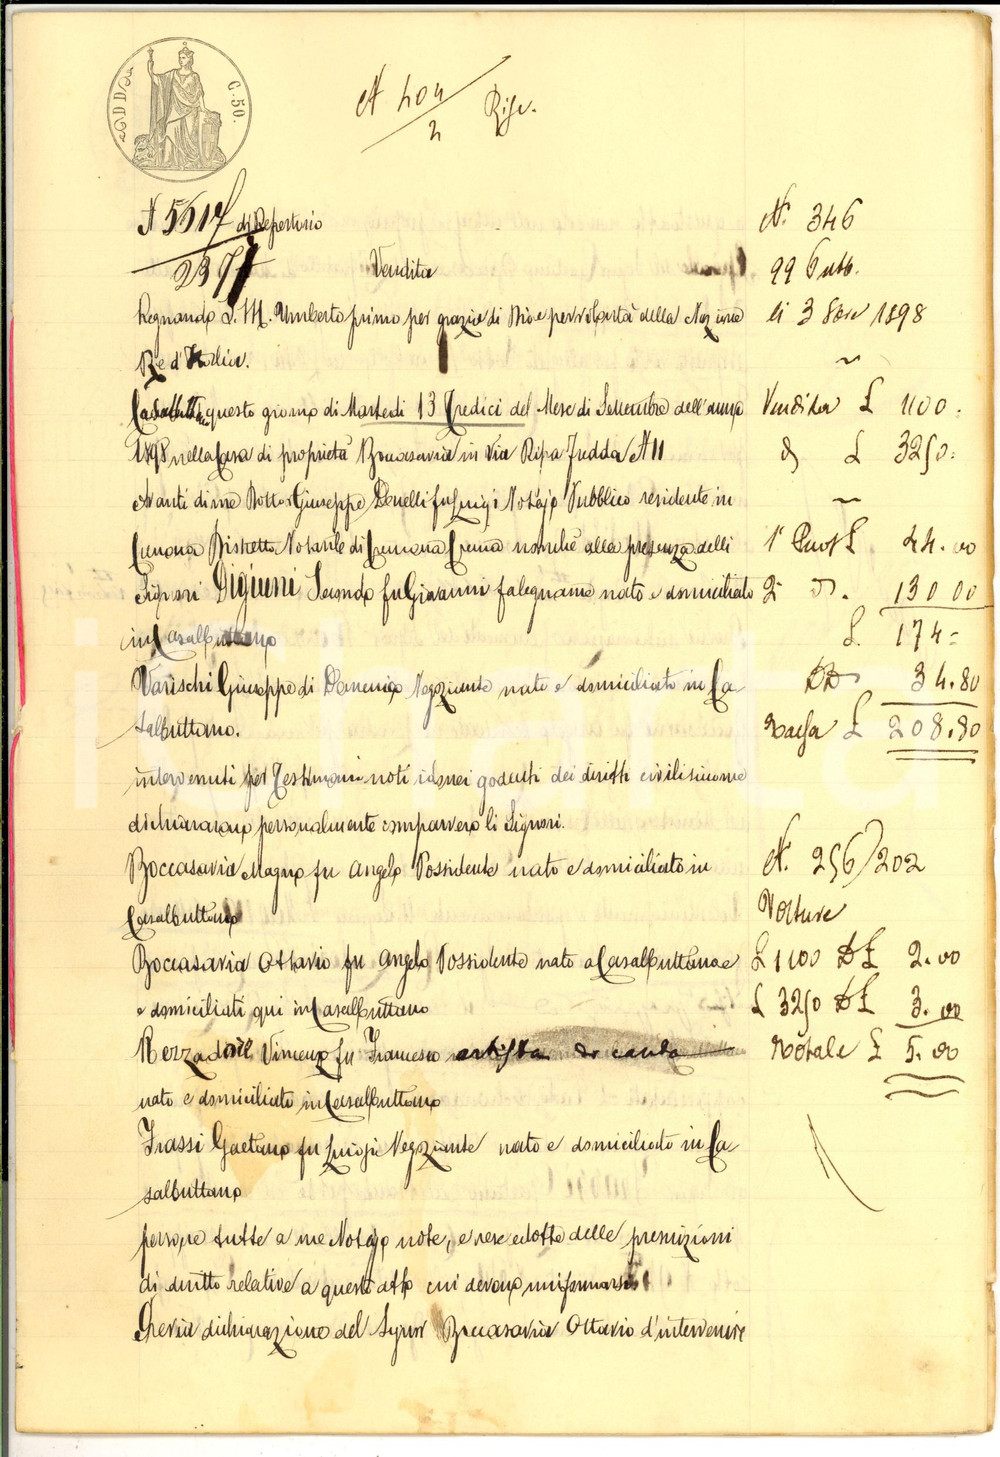 C. 50.
N 404/2 Rise.
N 5517 di Repertorio
2377
Vendita
Regnando S. M. Umberto primo per grazia di Dio e per volontà della Nazione
Re d'Italia.
Casalbuttano questo giorno di Martedi 13 Tredici del Mese di Settembre dell'anno
1898 nella Casa di proprietà Boccasavia in Via Ripa Fredda N 11
Avanti di me Dottor Giuseppe Denelli fu Luigi Notajo Pubblico residente in
Cremona Distretto Notarile di Cremona Crema nonchè alla presenza delli
Signori Digiuni Secondo fu Giovanni falegname nato e domiciliato
in Casalbuttano
Varischi Giuseppe di Domenico Negoziante nato e domiciliato in Ca
salbuttano.
intervenuti per Testimoni noti idonei godenti dei diritti civili siccome
dichiararono personalmente comparvero li Signori.
Boccasavia Magno fu Angelo Possidente nato e domiciliato in
Casalbuttano
Boccasavia Ottavio fu Angelo Possidente nato a Casalbuttano e
e domiciliati qui in Casalbuttano
Vincenzo fu Francesco artista da canto
nato e domiciliato in Casalbuttano
Frassi Gaetano fu Luigi Negoziante nato e domiciliato in Ca
salbuttano
persone tutte a me Notajo note, e rese edotte delle prescrizioni
di diritto relative a questo atto cui devono uniformarsi
Previa dichiarazione del Signor Boccasavia Ottavio d'intervenire
N. 346
99 Pubb.
li 3 8bre 1898
~
Vendita £ 1100.
d £ 3250.
~
1° £ 44.00
2° d. 130 00
£. 174=
DD 34.80
Tassa £ 208.80
N. 256/202
Volture
£ 1100 D £ 2.00
£ 3250 D £ 3.00
Totale £ 5.00